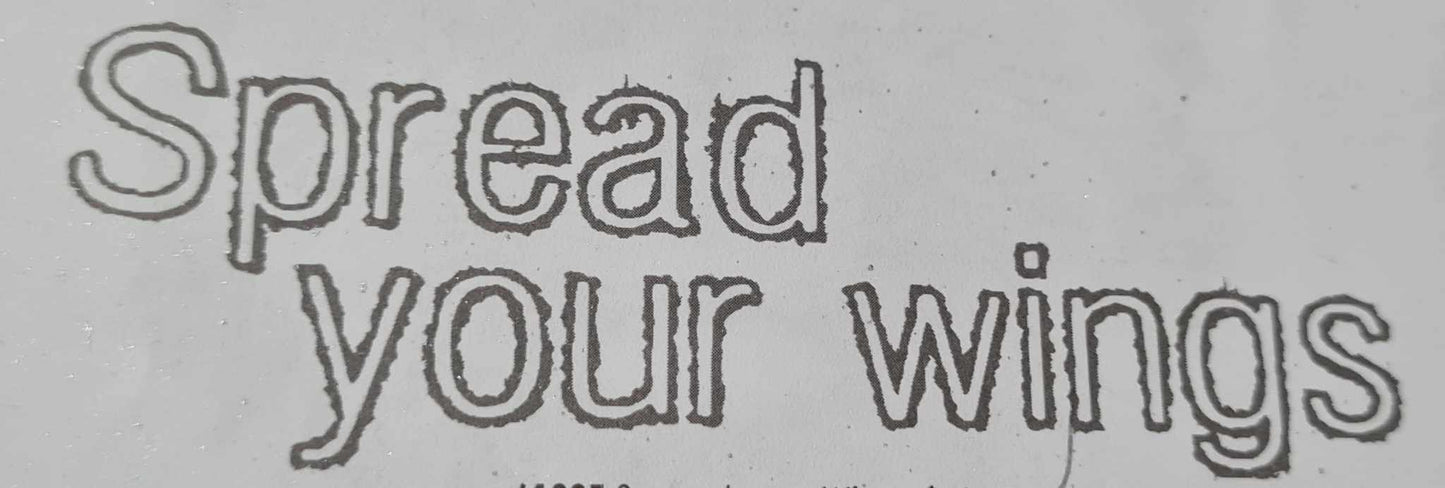 Spread
your wings